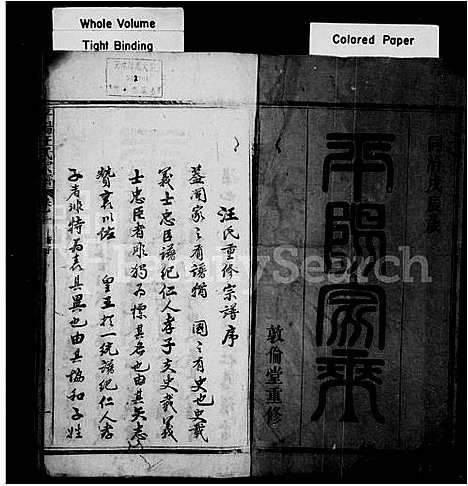 Whole Volume
Tight Binding
Colored Paper
平陽家乘
敦倫堂重修
汪氏重修宗譜序
蓋聞家之有譜猶國之有史也史載
義士忠臣譜紀仁人孝子夫史載義
士忠臣者非獨為標其名也由其矢志
贊襄以佐皇王於一統譜紀仁人孝
子者非特為表其異也由其協和子姓